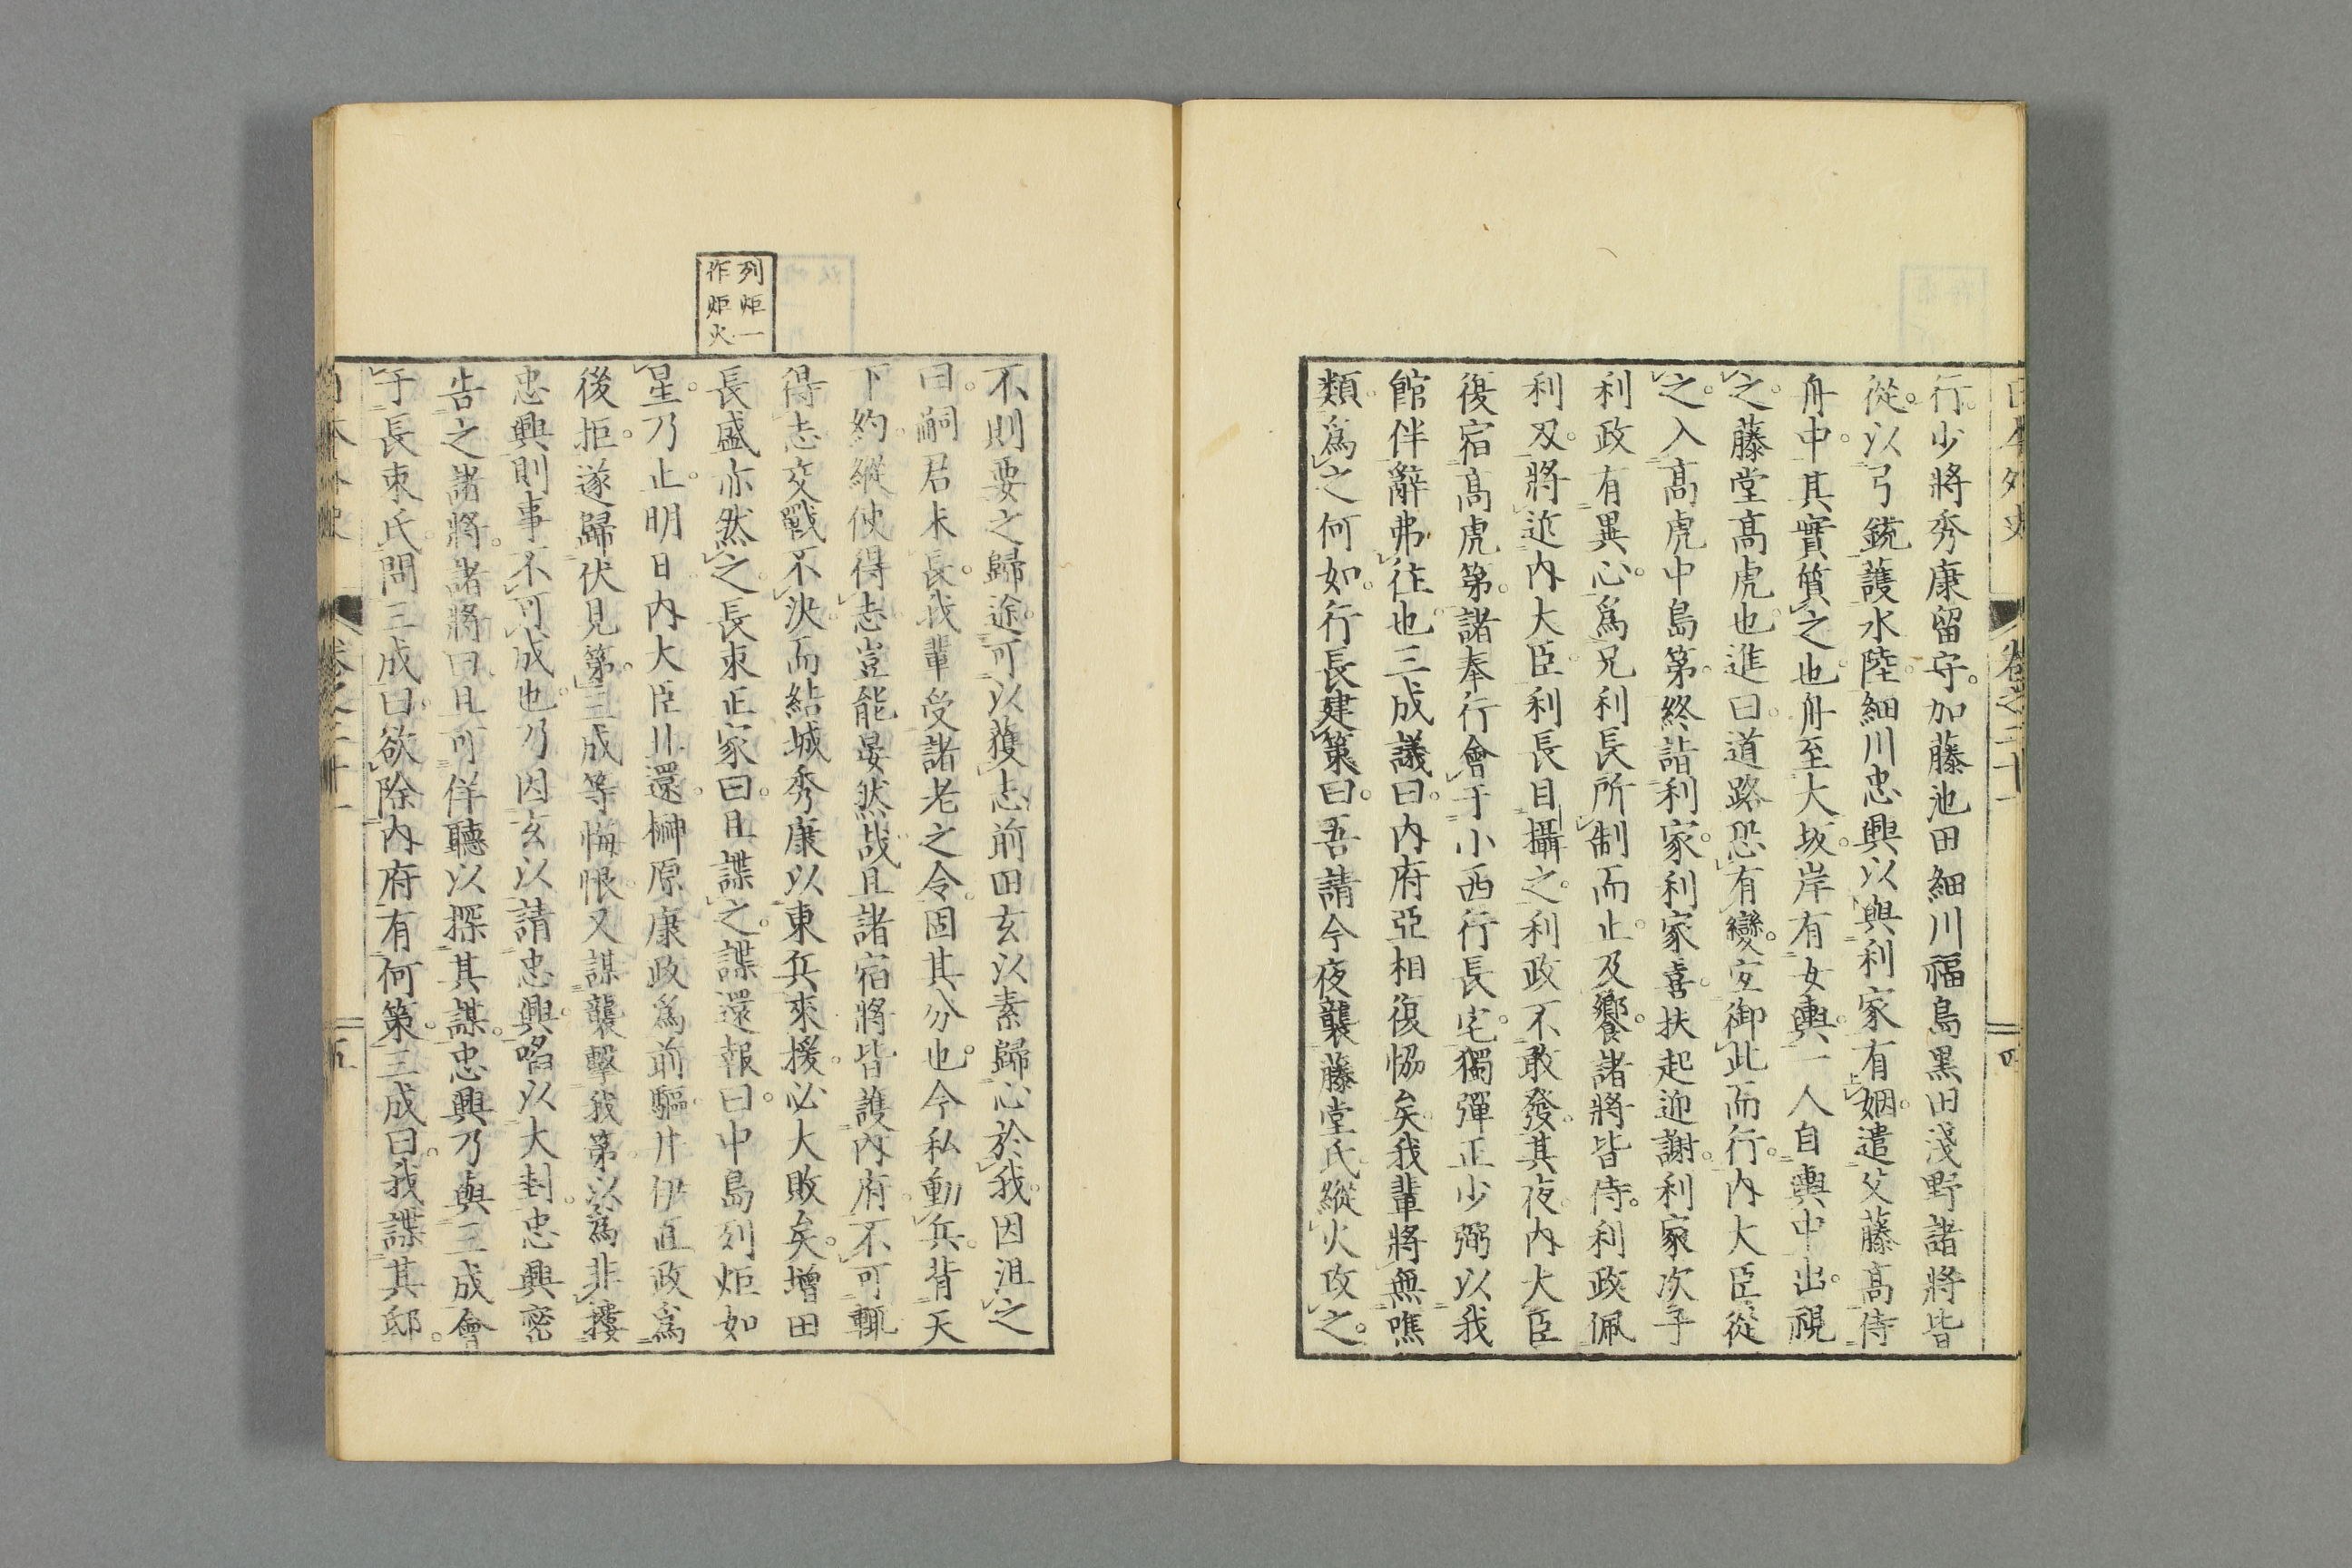 行。少將秀康留守。加藤池田細川福島黑田淺野諸將皆
從。以弓銃護水陸。細川忠興以與利家有姻。遣父藤高侍
舟中。其實質之也。舟至大坂。岸有女輿。一人自輿中出。視
之。藤堂高虎也。進曰。道路恐有變。宜御此而行。內大臣從
之。入高虎中島第。終詣利家。利家喜。扶起迎謝。利家次子
利政有異心。爲兄利長所制而止。及饗。諸將皆侍。利政佩
利刄。將近內大臣。利長目攝之。利政不敢發。其夜。內大臣
復宿高虎第。諸奉行會于小西行長宅。獨彈正少弼以我
館伴辭弗往也。三成議曰。內府亞相復協矣。我輩將無噍
類。爲之何如。行長建策曰。吾請今夜襲藤堂氏。縱火攻之。
日本外史
卷之二十一
四
列炬一
作炬火
不則要之歸途。可以獲志。前田玄以素歸心於我。因沮之
曰。嗣君未長。我輩受諸老之令。固其分也。今私動兵。背天
下約。縱使得志。豈能晏然哉。且諸宿將皆護內府。不可輒
得志。交戰不決。而結城秀康以東兵來援。必大敗矣。增田
長盛亦然之。長束正家曰。且諜之。諜還報曰。中島列炬如
星。乃止。明日。內大臣川還。榊原康政爲前驅。井伊直政爲
後拒。遂歸伏見第。三成等悔恨。又謀襲擊我第。以爲非摟
忠興則事不可成也。乃因玄以請忠興。啗以大封。忠興密
告之諸將。諸將曰。且可佯聽以探其謀。忠興乃與三成會
于長束氏。問三成曰。欲除內府。有何策。三成曰。我諜其邸。
日本外史
卷之二十一
五